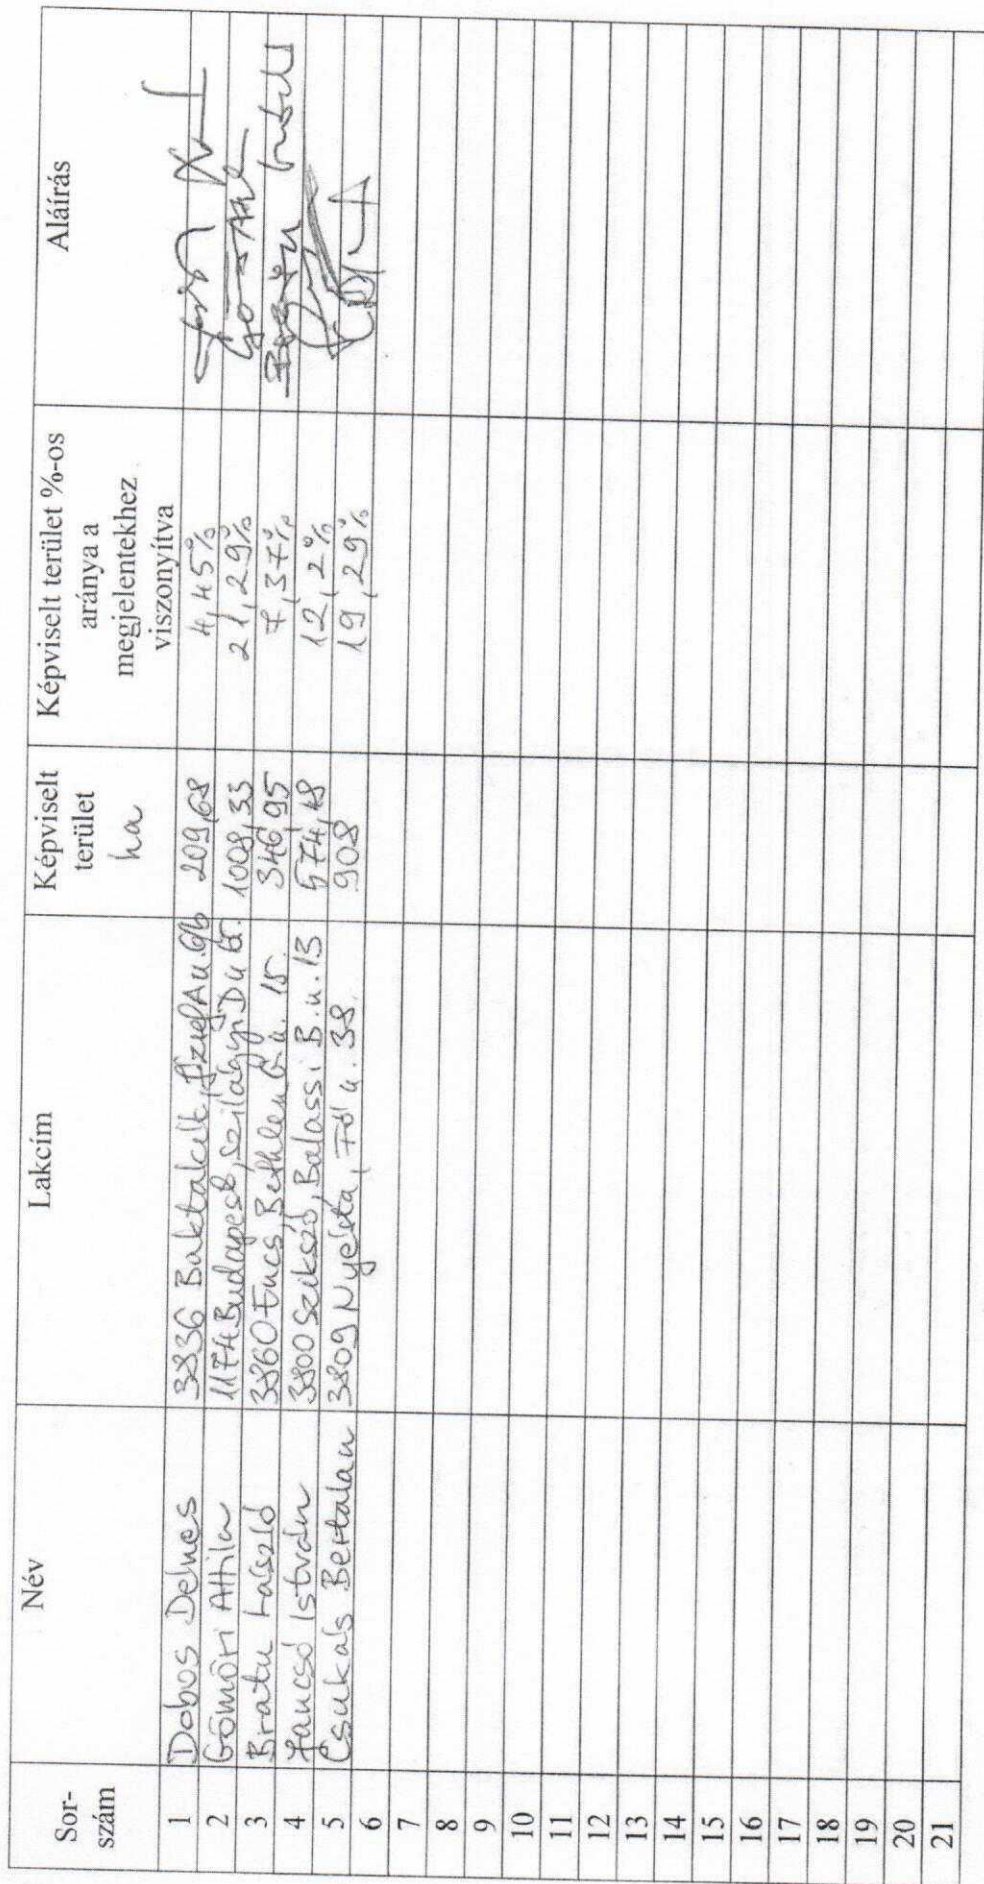 Sor-
szám
Név
Lakcím
Képviselt
terület
ha
Képviselt terület %-os
aránya a
megjelentekhez
viszonyítva
Aláírás
1 Dobos Delnes 3836 Baktakék, u. 209,68 4,45%
2 Gömöri Attila 1174 Budapest, Szilágyi D u 1008,33 21,29%
3 Bratu László 3860 Encs, Bethlen G. u. 15. 346,95 7,37%
4 Jancsó István 3800 Szikszó, Balassi B. u. 13 574,48 12,2%
5 Csukás Bertalan 3809 Nyésta, Fő u. 38. 908 19,29%
6
7
8
9
10
11
12
13
14
15
16
17
18
19
20
21